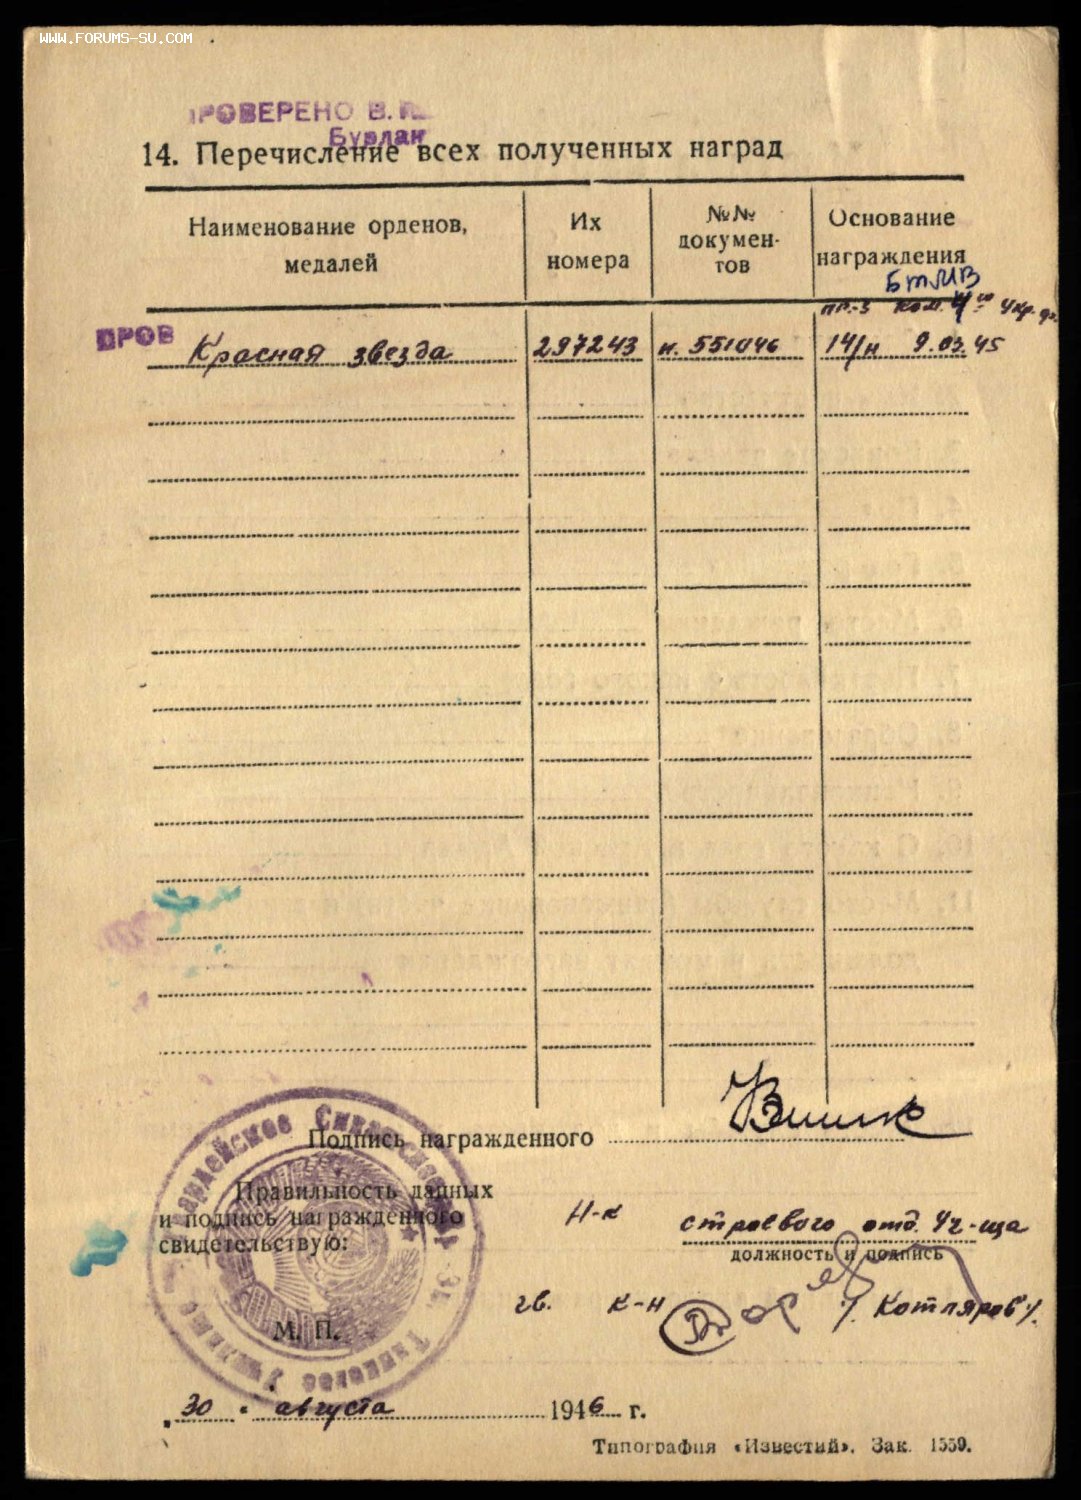 WWW.FORUMS-SU.COM
ПРОВЕРЕНО В.
Бурлак
14. Перечисление всех полученных наград
Наименование орденов, медалей
Их номера
№№ докумен- тов
Основание награждения
БТиМВ
пр-з ком. 4 Укр.
ПРОВ
Красная звезда 297243 н. 551046 14/н 9.03.45
Подпись награжденного
Правильность данных
и подпись награжденного
свидетельствую:
Н-к строевого отд. Уч-ща
должность и подпись
гв. к-н /Котляров/.
М. П.
Танковое Училище
"30" августа 1946 г.
Типография «Известий». Зак. 1559.